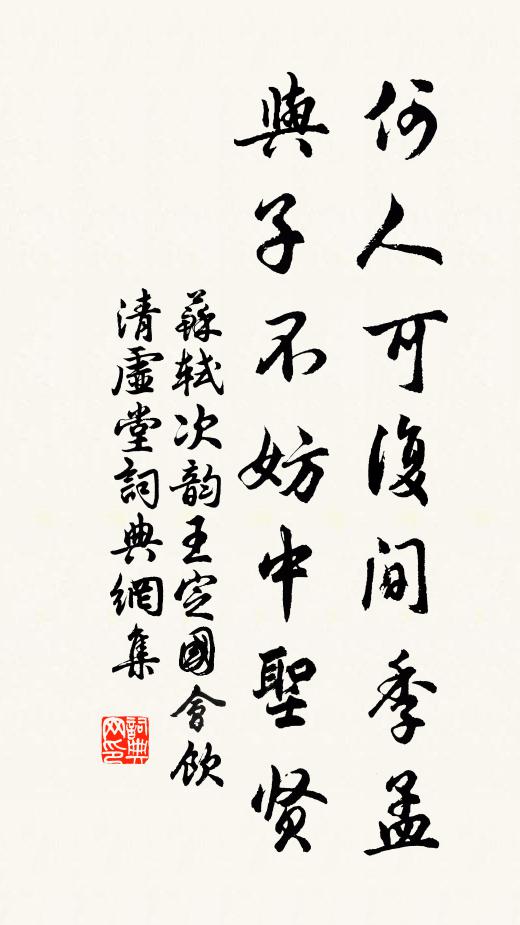 何人可復間季孟
與子不妨中聖贤
蘇軾次韵王定國會飲
清虛堂詞典網集
詞典
网印